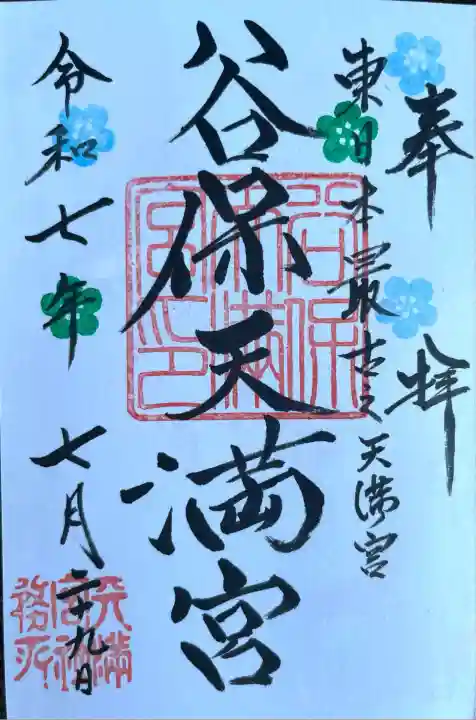 奉拝
東日本最古之天満宮
谷保天満宮
谷保天満宮印
令和七年 七月二十九日
天満宮社務所